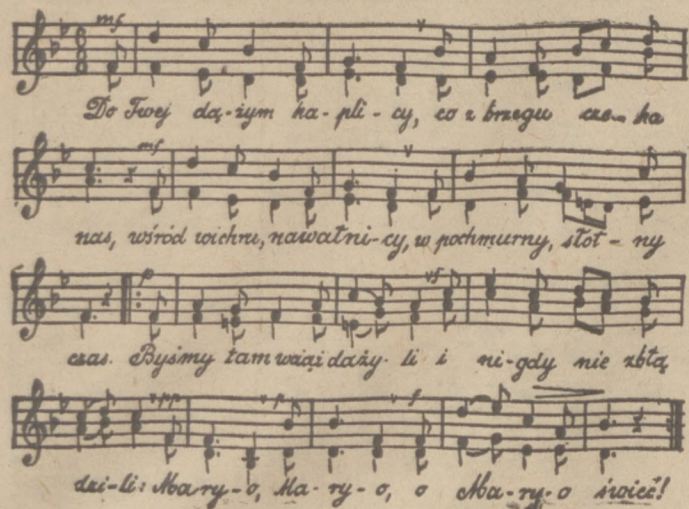 mf
Do Twej dą-żym ka-pli-cy, co z brzegu cze-ka
mf
nas, wśród wichru, nawałni-cy, w pochmurny, słot-ny
czas. Byśmy tam wciąż dąży-li i ni-gdy nie zbłą
dzi-li: Ma-ry-o, Ma-ry-o, o Ma-ry-o świeć!